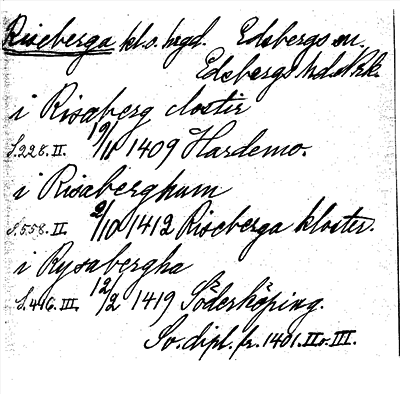 Riseberga kl. o. hrgd. Edsbergs sn.
Edsbergs hd. Nrk.
i Risaberg closter
S. 228. II. 19/11 1409 Hardemo.
i Risaberghum
S. 558. II. 2/10 1412 Riseberga kloster.
i Rysabergha
S. 416. III. 12/2 1419 Söderköping.
Sv. dipl. fr. 1401. II o. III.